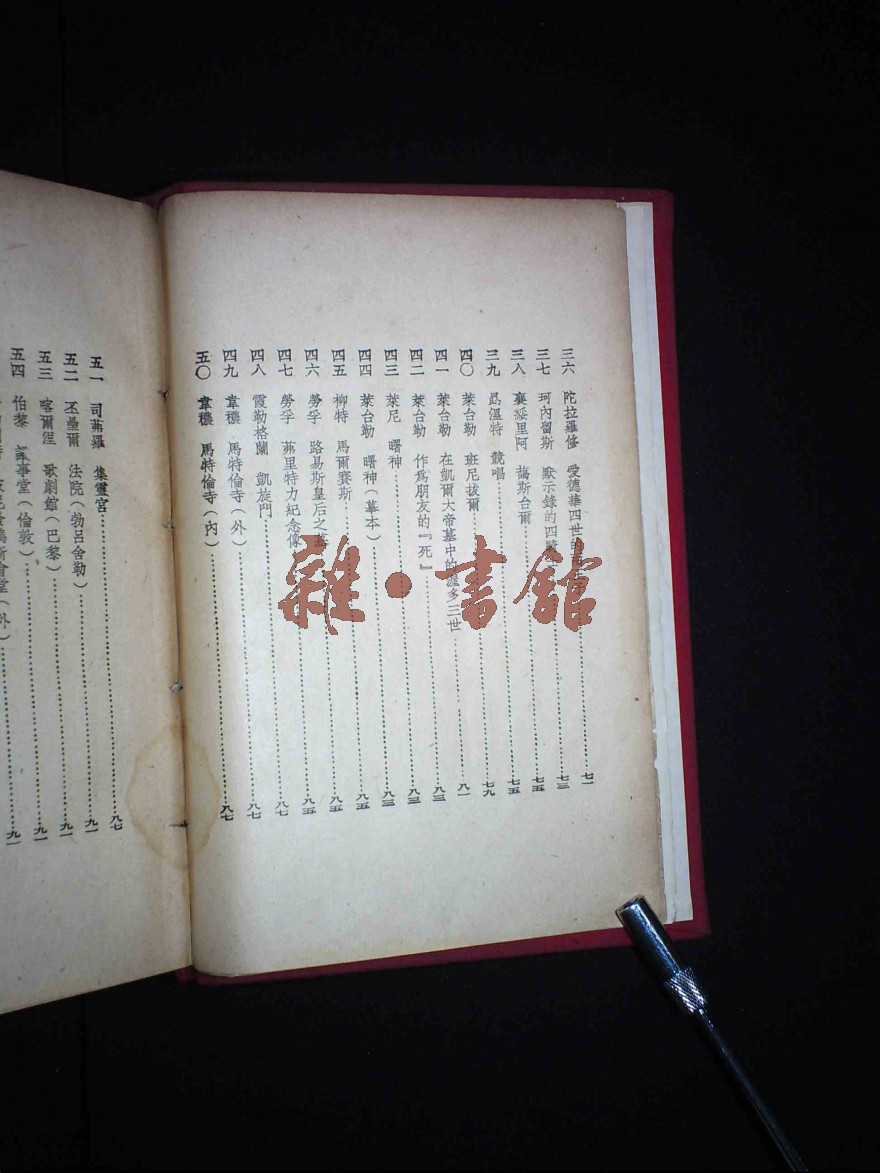 三六 陀拉羅修 愛德華四世的 七一
三七 珂內留斯 默示錄的四騎 七三
三八 襄綏里阿 藹斯台爾 七五
三九 昂溫特 競唱 七九
四〇 萊台勒 班尼拔爾 八一
四一 萊台勒 在凱爾大帝墓中的渥多三世 八三
四二 萊台勒 作爲朋友的『死』 八三
四三 萊尼 曙神 八三
四四 萊台勒 曙神(摹本) 八五
四五 柳特 馬爾賽斯 八五
四六 勞孚 路易斯皇后之墓 八五
四七 勞孚 茀里特力紀念像 八七
四八 霞勒格蘭 凱旋門 八七
四九 韋穠 馬特倫寺(外) 八七
五〇 韋穠 馬特倫寺(內) 八七
五一 司茀羅 集靈宮 八七
五二 丕壘爾 法院(勃呂舍勒) 九一
五三 喀爾涅 歌劇館(巴黎) 九一
五四 伯黎 議事堂(倫敦) 九一
雜·書館